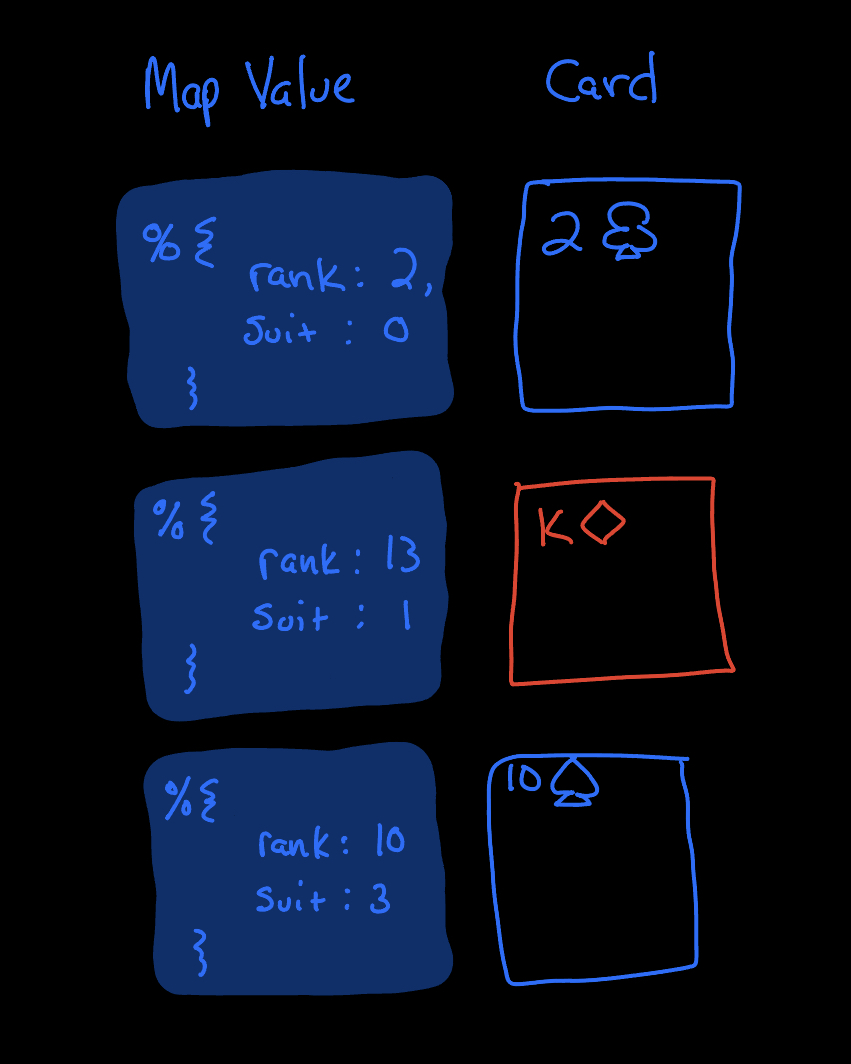 Map Value
Card
%{
rank: 2,
suit: 0
}
2 ♣
%{
rank: 13
suit: 1
}
K ♦
%{
rank: 10
suit: 3
}
10 ♠